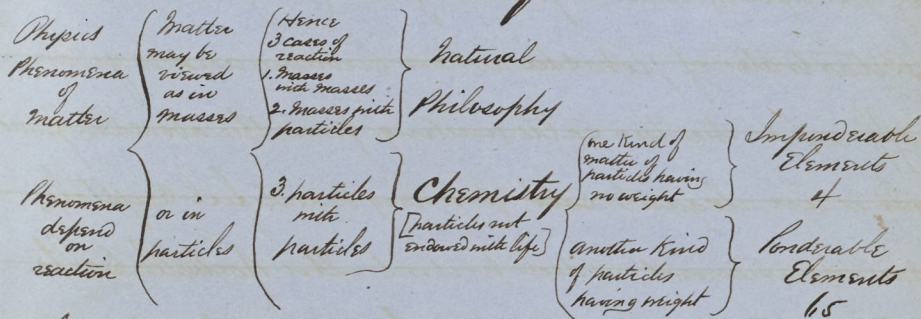 Physics
Phenomena
of
Matter
Phenomena
depend
on
reaction
Matter
may be
viewed
as in
masses
or in
particles
Hence
3 cases of
reaction
1. Masses
with masses
2. Masses with
particles
3. particles
with
particles
Natural
Philosophy
Chemistry
[particles not
endowed with life]
one kind of
matter of
particles having
no weight
another kind
of particles
having weight
Imponderable
Elements
4
Ponderable
Elements
65